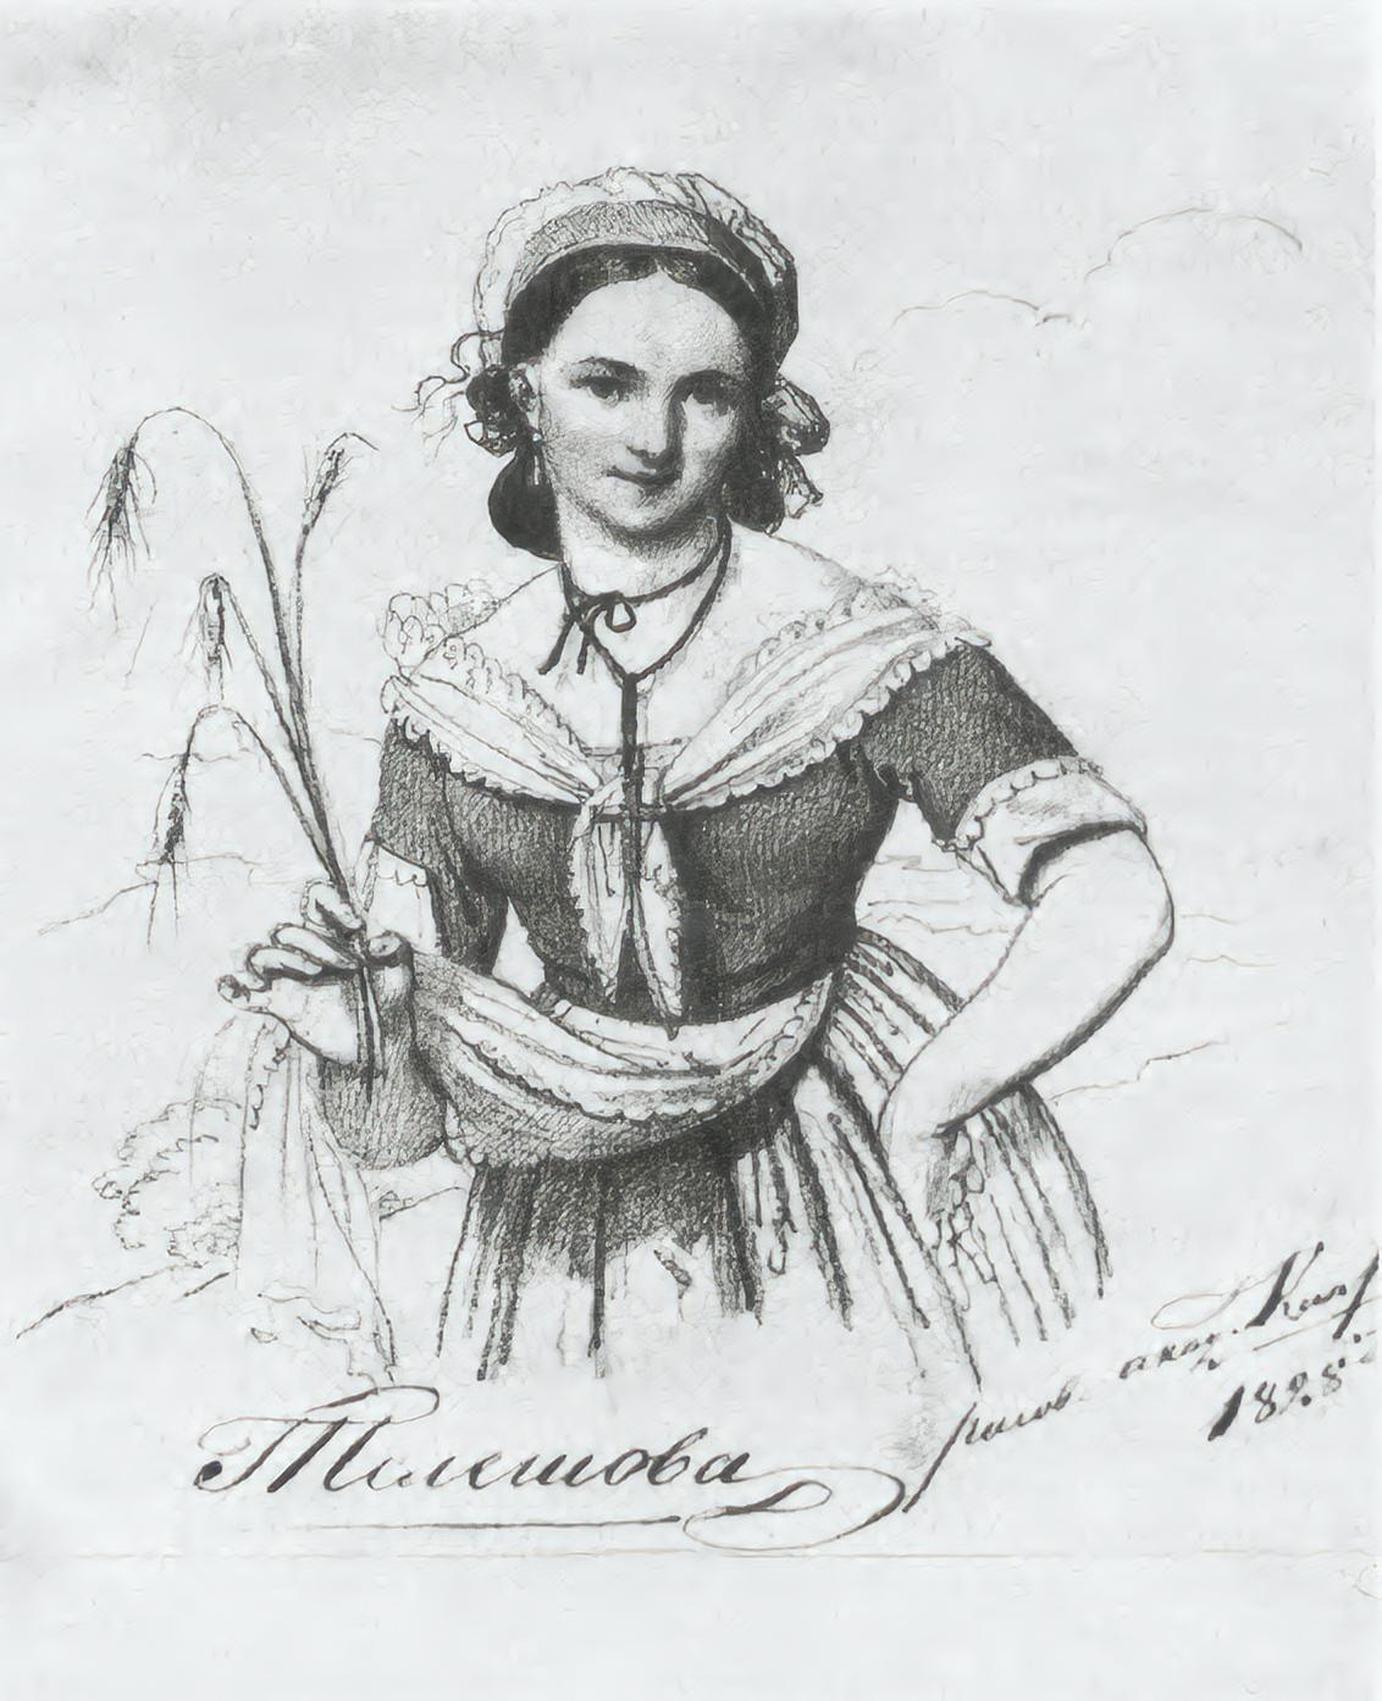 Телешова
рисов. акад. Кип
1828